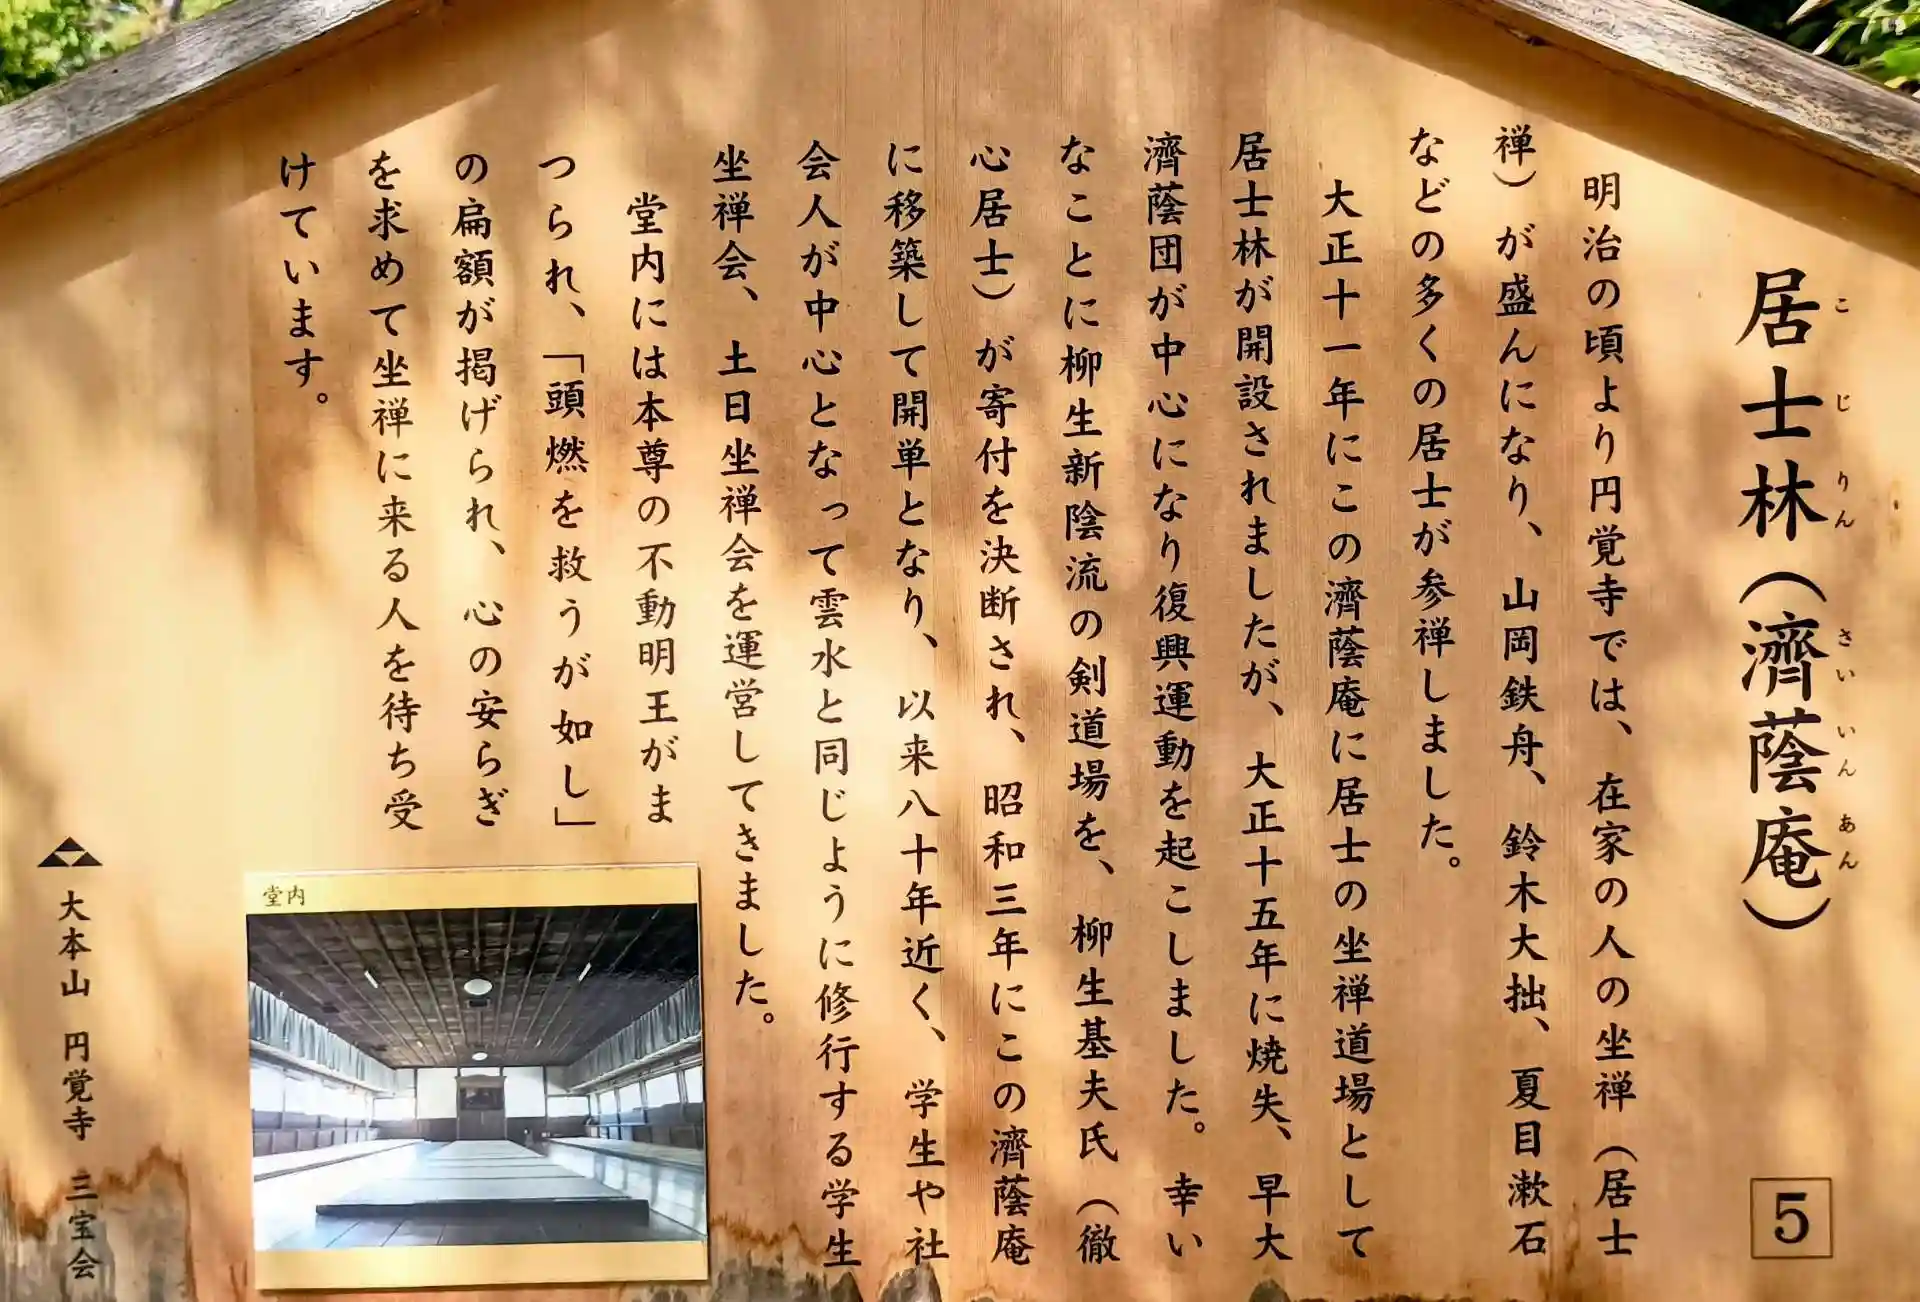 居士林（濟蔭庵）
こ じ りん さい いん あん
5
明治の頃より円覚寺では、在家の人の坐禅（居士
禅）が盛んになり、山岡鉄舟、鈴木大拙、夏目漱石
などの多くの居士が参禅しました。
大正十一年にこの濟蔭庵に居士の坐禅道場として
居士林が開設されましたが、大正十五年に焼失、早大
濟蔭団が中心になり復興運動を起こしました。幸い
なことに柳生新陰流の剣道場を、柳生基夫氏（徹
心居士）が寄付を決断され、昭和三年にこの濟蔭庵
に移築して開単となり、以来八十年近く、学生や社
会人が中心となって雲水と同じように修行する学生
坐禅会、土日坐禅会を運営してきました。
堂内には本尊の不動明王がま
つられ、「頭燃を救うが如し」
の扁額が掲げられ、心の安らぎ
を求めて坐禅に来る人を待ち受
けています。
堂内
大本山 円覚寺 三宝会